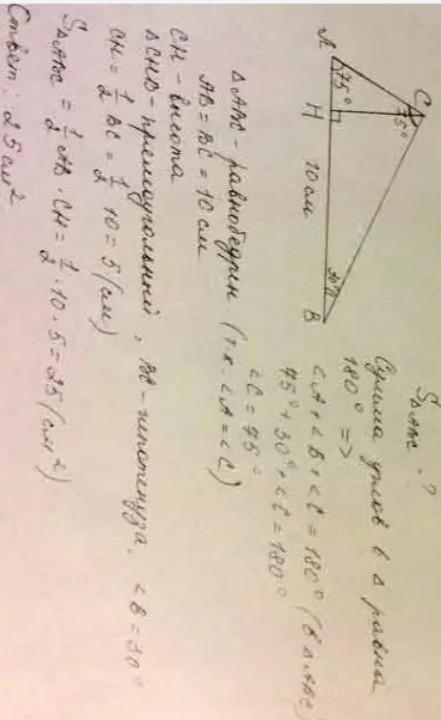 C
A
75°
75°
H
10 см
30°
B
S△ABC - ?
Сумма углов в △ равна
180° =>
∠A + ∠B + ∠C = 180° (В △ABC)
75° + 30° + ∠C = 180°
∠C = 75°
△ABC - равнобедрен. (т.к. ∠A = ∠C)
AB = BC = 10 см
CH - высота
△CHB - прямоугольный, BC - гипотенуза. ∠B = 30°
CH = 1/2 BC = 1/2 · 10 = 5 (см)
S△ABC = 1/2 AB · CH = 1/2 · 10 · 5 = 25 (см²)
Ответ: 25 см²